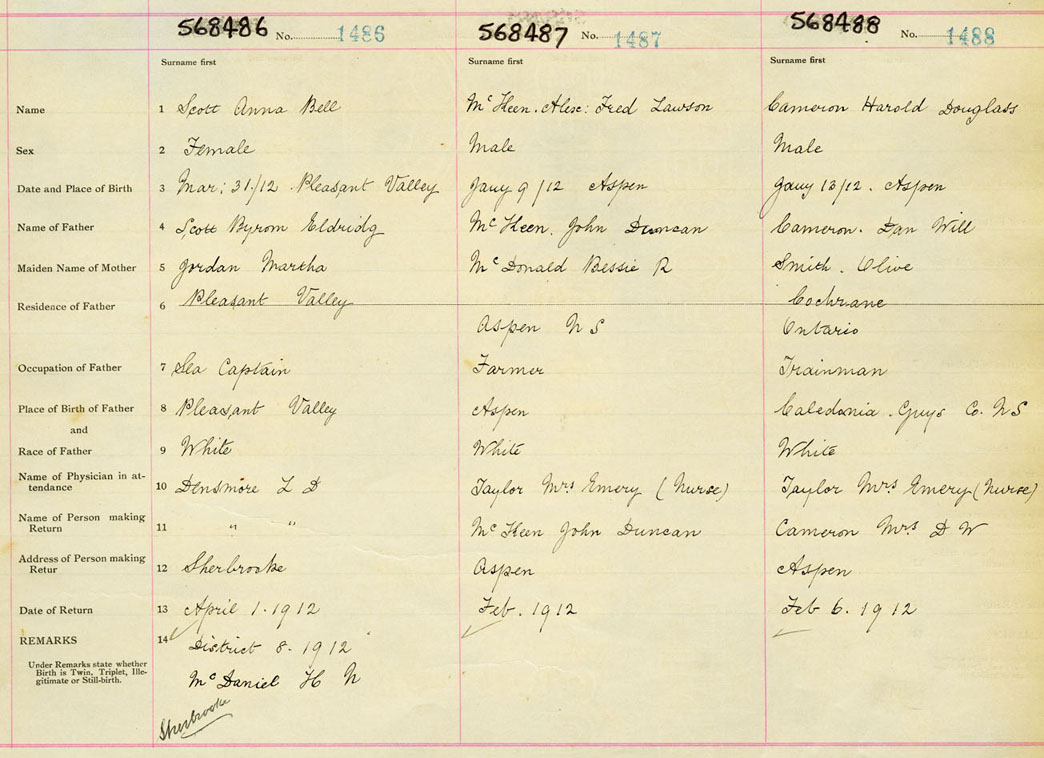 568486 No. 1486 568487 No. 1487 568488 No. 1488
Surname first Surname first Surname first
Name 1 Scott Anna Bell McKeen. Alex: Fred Lawson Cameron Harold Douglass
Sex 2 Female Male Male
Date and Place of Birth 3 Mar: 31/12 Pleasant Valley Jany 9/12 Aspen Jany 13/12. Aspen
Name of Father 4 Scott Byrom Eldridg McKeen. John Duncan Cameron. Dan Will
Maiden Name of Mother 5 Jordan Martha McDonald Bessie R Smith. Olive
Residence of Father 6 Pleasant Valley Cochrane
Aspen N S Ontario
Occupation of Father 7 Sea Captain Farmer Trainman
Place of Birth of Father 8 Pleasant Valley Aspen Caledonia. Guys Co. N S
and
Race of Father 9 White White White
Name of Physician in at-
tendance 10 Densmore L D Taylor Mrs Emery (Nurse) Taylor Mrs Emery (Nurse)
Name of Person making
Return 11 " " McKeen John Duncan Cameron Mrs D W
Address of Person making
Retur 12 Sherbrooke Aspen Aspen
Date of Return 13 April 1. 1912 Feb. 1912 Feb 6. 1912
REMARKS 14 District 8. 1912
Under Remarks state whether
Birth is Twin, Triplet, Ille-
gitimate or Still-birth.
McDaniel H N
Sherbrooke